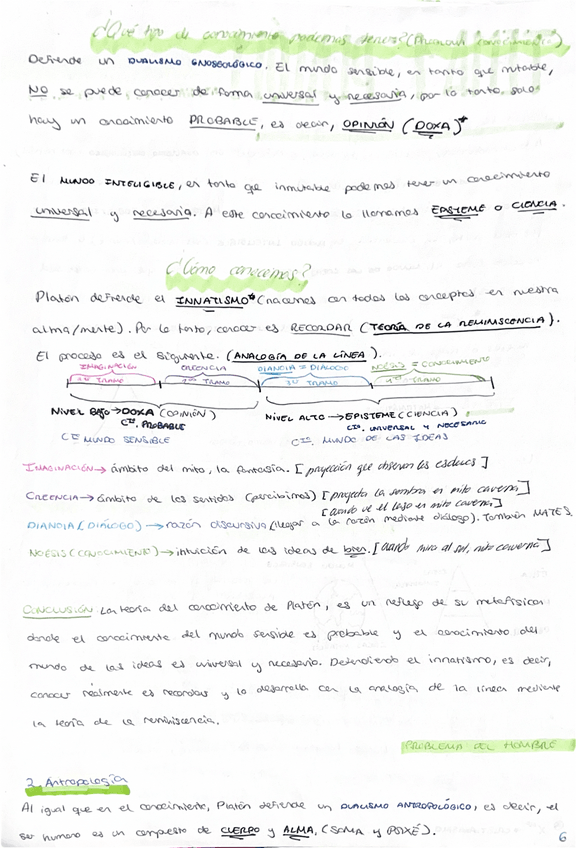 ¿Qué tipo de conocimiento podemos tener? (
Defiende un DUALISMO GNOSEOLÓGICO. El mundo sensible, en tanto que mutable,
NO se puede conocer de forma universal y necesaria, por lo tanto solo
hay un conocimiento PROBABLE, es decir, OPINIÓN (DOXA)*
El MUNDO INTELIGIBLE, en tanto que inmutable podemos tener un conocimiento
universal y necesaria. A este conocimiento lo llamamos EPISTEME o CIENCIA.
¿Cómo conocemos?
Platón defiende el INNATISMO* (nacemos con todos los conceptos en nuestra
alma/mente). Por lo tanto, conocer es RECORDAR (TEORÍA DE LA REMINISCENCIA).
El proceso es el siguiente. (ANALOGÍA DE LA LÍNEA).
IMAGINACIÓN CREENCIA DIANOIA = DIÁLOGO NOESIS = CONOCIMIENTO
1er TRAMO 2º TRAMO 3er TRAMO 4º TRAMO
NIVEL BAJO → DOXA (OPINIÓN) NIVEL ALTO → EPISTEME (CIENCIA)
Cto. PROBABLE Cto. UNIVERSAL Y NECESARIO
Cto MUNDO SENSIBLE Cto. MUNDO DE LAS IDEAS
IMAGINACIÓN → ámbito del mito, la fantasía. [proyección que observan los esclavos]
CREENCIA → ámbito de los sentidos (percibimos) [proyecta la sombra en mito caverna]
[cuando ve el en mito caverna]
DIANOIA (DIÁLOGO) → razón discursiva (llegar a la razón mediante diálogo). También MATES.
NOESIS (CONOCIMIENTO) → intuición de las ideas de bien. [cuando mira al sol, mito caverna]
CONCLUSIÓN La teoría del conocimiento de Platón, es un reflejo de su metafísica
donde el conocimiento del mundo sensible es probable y el conocimiento del
mundo de las ideas es universal y necesario. Defendiendo el innatismo, es decir,
conocer realmente es recordar y lo desarrolla con la analogía de la línea mediante
la teoría de la reminiscencia.
PROBLEMA DEL HOMBRE
2. Antropología
Al igual que en el conocimiento, Platón defiende un DUALISMO ANTROPOLÓGICO, es decir, el
ser humano es un compuesto de CUERPO y ALMA, (SOMA y PSIXÉ).
6